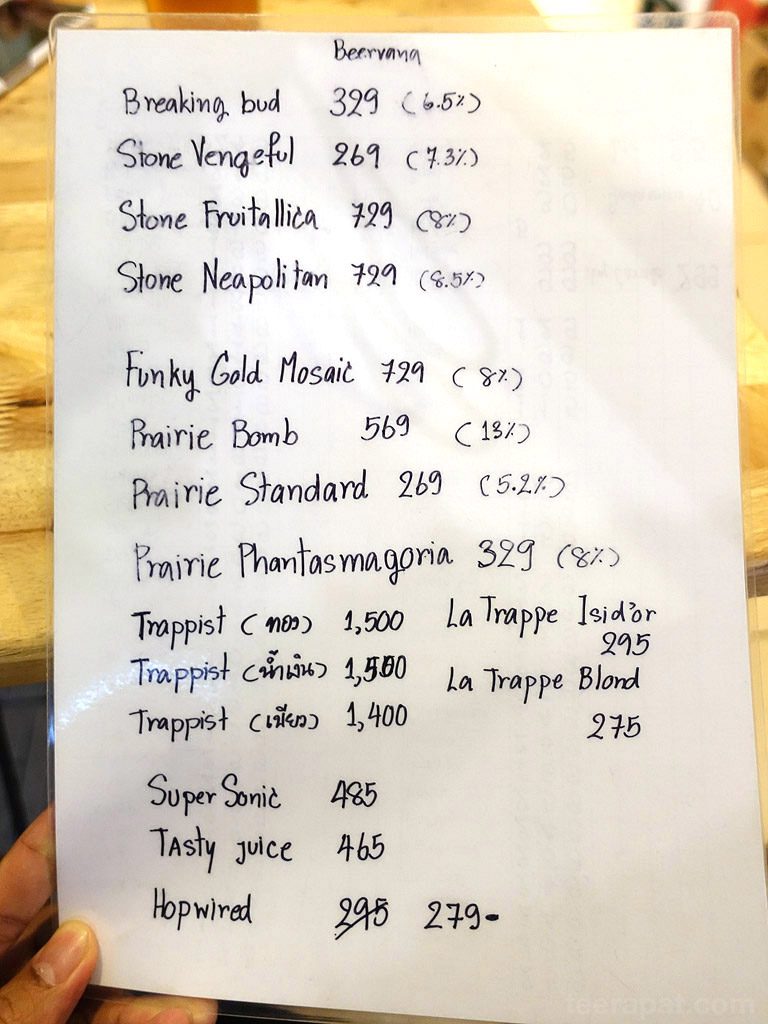 Beervana
Breaking bud 329 (6.5%)
Stone Vengeful 269 (7.3%)
Stone Fruitallica 729 (8%)
Stone Neapolitan 729 (8.5%)
Funky Gold Mosaic 729 (8%)
Prairie Bomb 569 (13%)
Prairie Standard 269 (5.2%)
Prairie Phantasmagoria 329 (8%)
Trappist (ทอง) 1,500
La Trappe Isid'or
295
Trappist (น้ำเงิน)
La Trappe Blond
275
Trappist (เขียว) 1,400
Super Sonic 485
Tasty juice 465
Hopwired 295 279-
teerapat.com